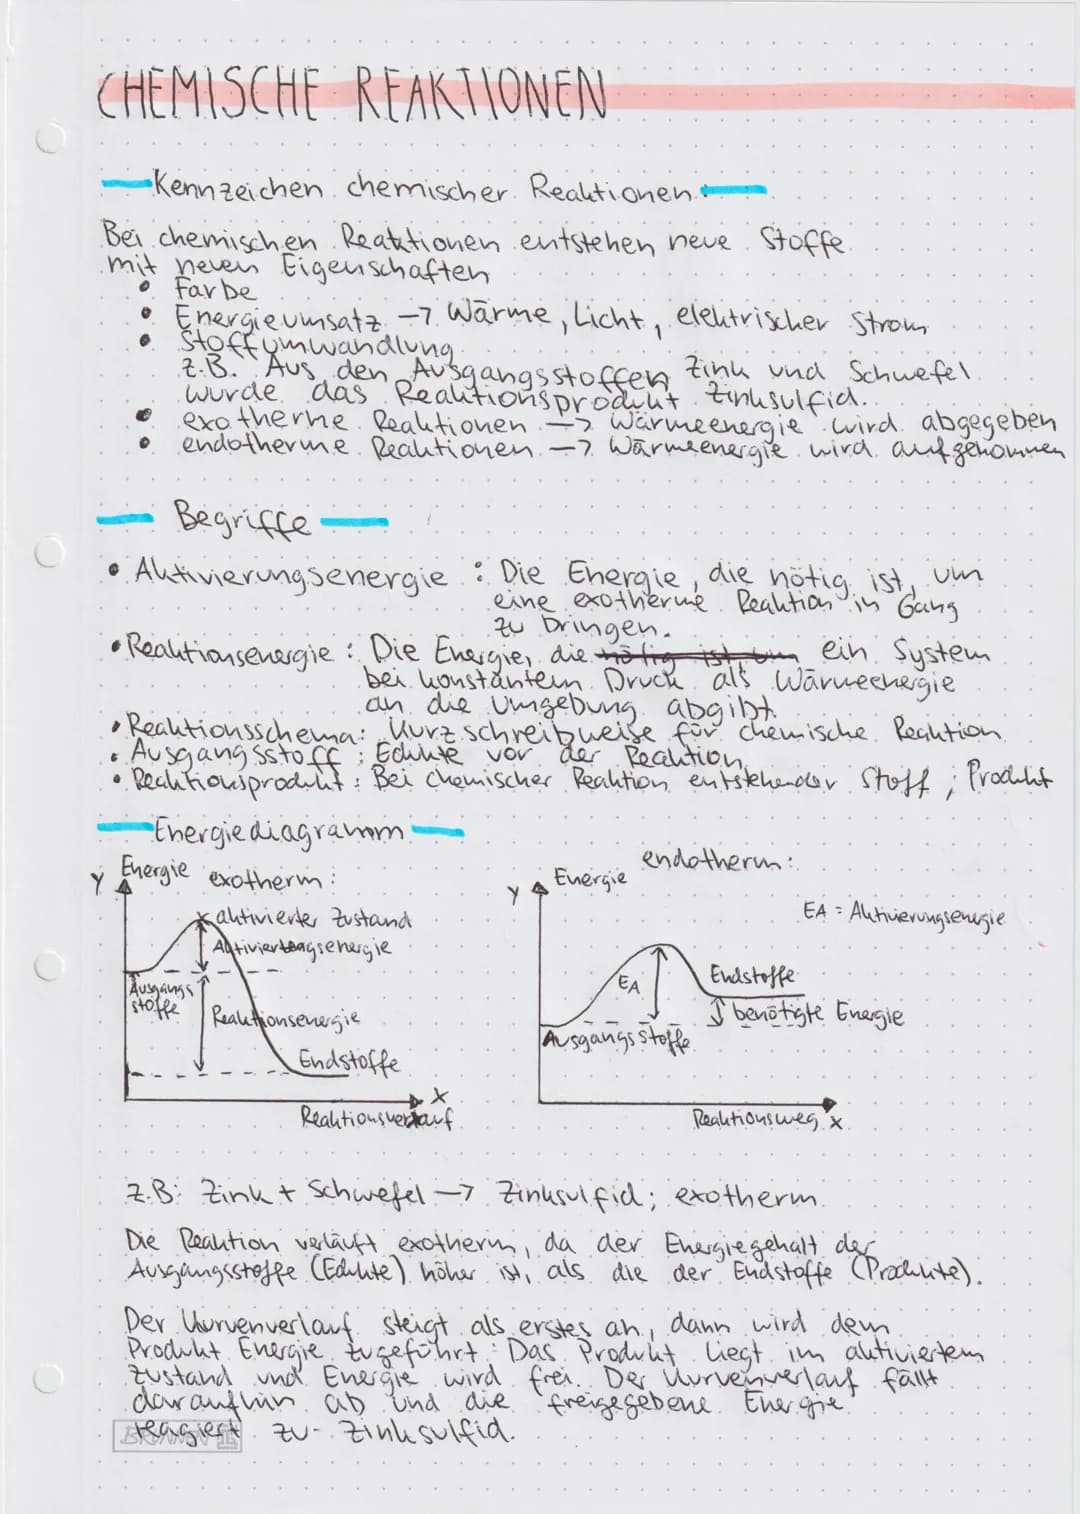 CHEMISCHE REAKTIONEN
Kennzeichen chemischer Reaktionen
Bei chemischen Reaktionen entstehen neue Stoffe
mit neuen Eigenschaften
• Farbe
• Energieumsatz → Wärme, Licht, elektrischer Strom
• Stoffumwandlung
z.B. Aus den Ausgangsstoffen Zink und Schwefel
wurde das Reaktionsprodukt Zinksulfid.
• exotherme Reaktionen → Wärmeenergie wird abgegeben
• endotherme Reaktionen → Wärmeenergie wird aufgenommen
Begriffe
• Aktivierungsenergie : Die Energie, die nötig ist, um
eine exotherme Reaktion in Gang
zu bringen.
• Reaktionsenergie : Die Energie, die nötig ist, um ein System
bei konstantem Druck als Wärmeenergie
an die Umgebung abgibt.
• Reaktionsschema: Kurzschreibweise für chemische Reaktion
• Ausgangsstoff : Edukte vor der Reaktion
• Reaktionsprodukt : Bei chemischer Reaktion entstehender Stoff ; Produkt
Energiediagramm
Y Energie exotherm:
aktivierter Zustand
Aktivierungsenergie
Ausgangs
stoffe
Reaktionsenergie
Endstoffe
X
Reaktionsverlauf
endotherm:
Y Energie
EA = Aktivierungsenergie
EA
Endstoffe
benötigte Energie
Ausgangsstoffe
Reaktionsweg X
z.B: Zink + Schwefel → Zinksulfid; exotherm
Die Reaktion verläuft exotherm, da der Energiegehalt der
Ausgangsstoffe (Edukte) höher ist, als die der Endstoffe (Produkte).
Der Kurvenverlauf steigt als erstes an, dann wird dem
Produkt Energie zugeführt. Das Produkt liegt im aktiviertem
Zustand und Energie wird frei. Der Kurvenverlauf fällt
daraufhin ab und die freigegebene Energie
reagiert zu Zinksulfid.
BRUNNEN